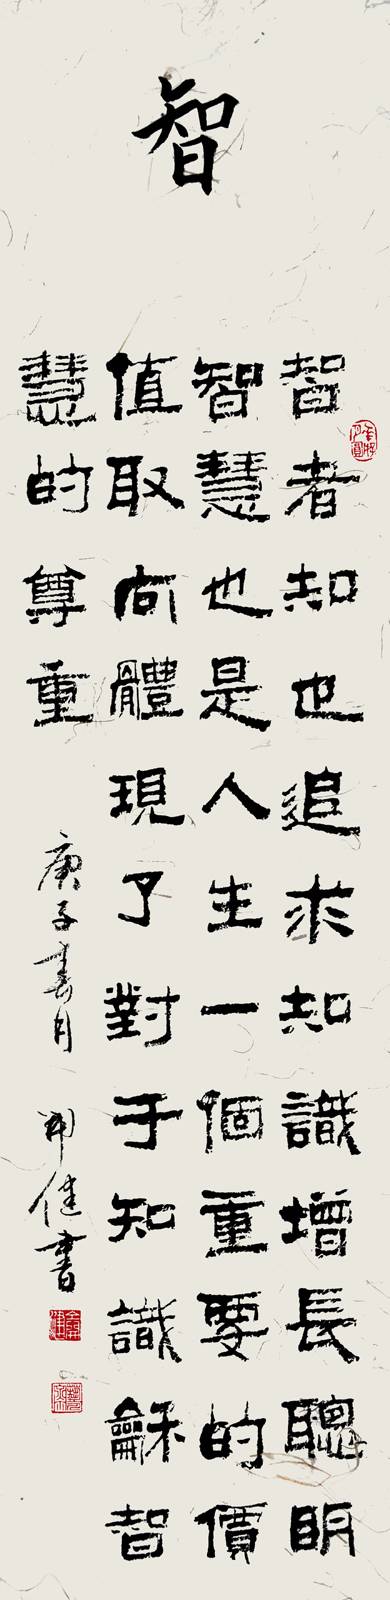 智
智者知也追求知識增長聰明
智慧也是人生一個重要的價
值取向體現了對于知識龢智
慧的尊重
庚子春月
健書